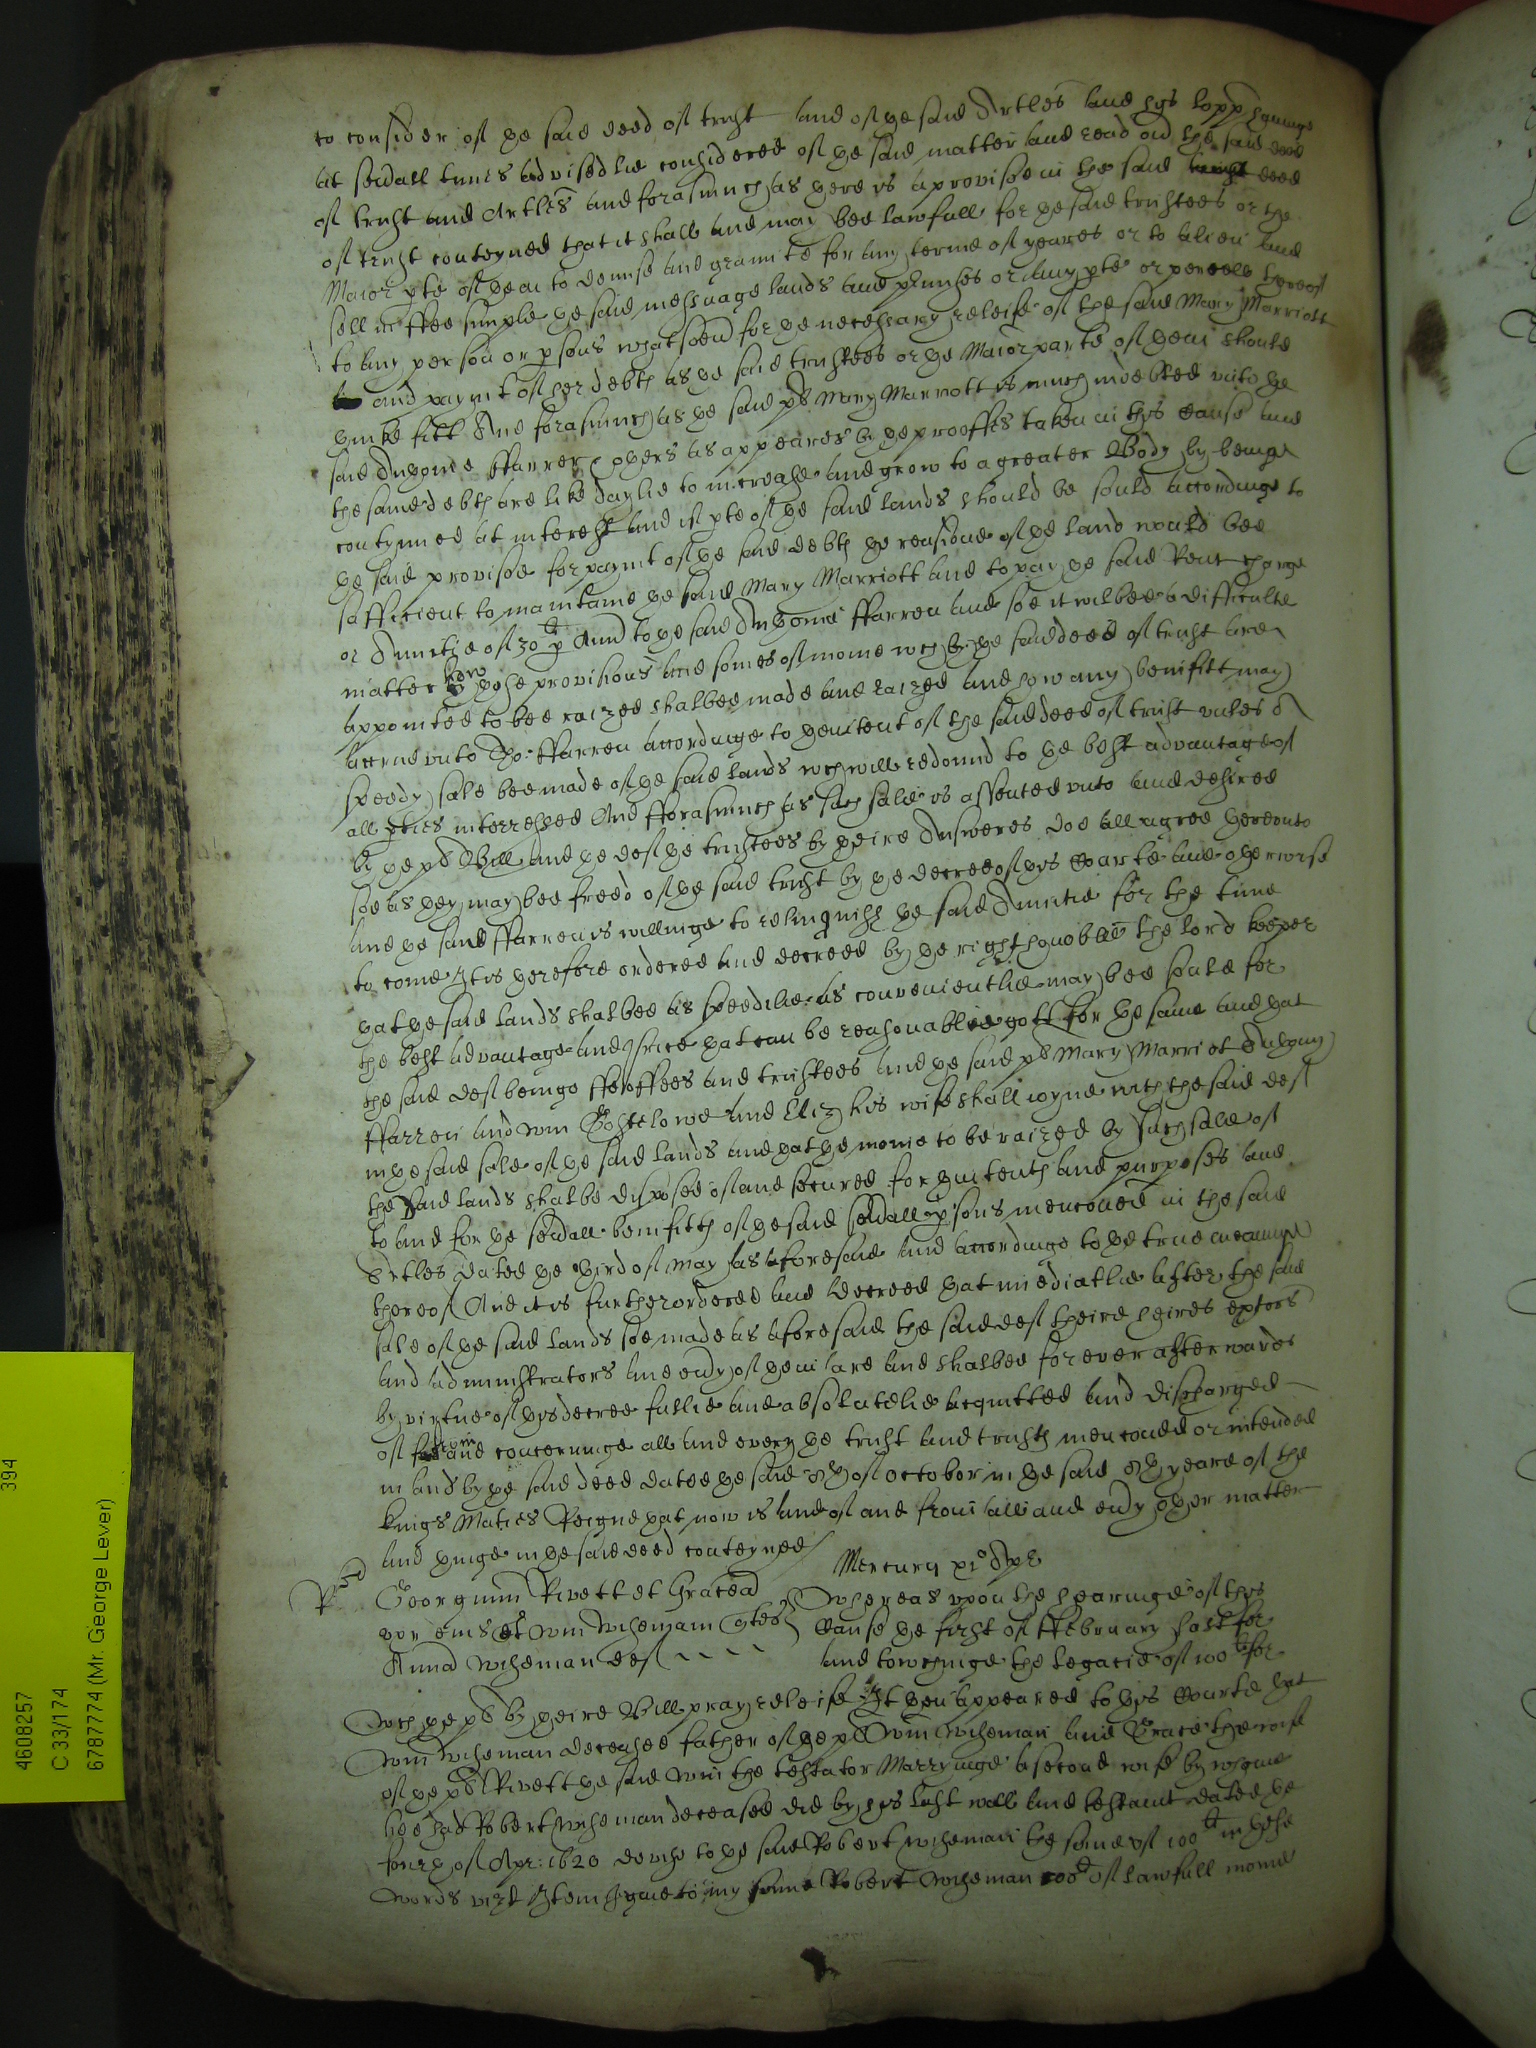 to consider of ye said deed of trust and of ye said Artles and his lopp haveinge
at sevall tymes advisedlie considered of ye said matter and read over the said deed
of trust and Artles and forasmuch as there is a provisoe in the said deed
of trust conteyned that it shall and may bee lawfull for ye said trustees or the
Maior pte of them to demise and graunte for any terme of yeares or to alien and
sell in ffee simple ye said messuage lands and pmisses or any pte or percell thereof
to any person or psons whatsoev for ye necessary releife of the said Mary Marriott
and paymt of her debts as ye said trustees or ye Maior parte of them should
thinke fitt And forasmuch as ye said pl Mary Marriott is much indebted unto ye
said Anthonie ffarren & others as appeares by ye prooffes taken in this cause and
the same debts are like daylie to increase and grow to a greater Body by beinge
contynued at interest and if pte of ye said lands should be sould accordinge to
ye said provisoe for paymt of ye said debts ye residue of ye land would bee
sufficient to maintaine ye said Mary Marriott and to pay ye said Rent charge
or Annuitie of 30li p Ann to ye said Anthonie ffarren and soe it wilbee a difficulte
matter how those provisions and somes of monie wch by ye said deed of trust are
appointed to bee raized shalbee made and raized and how any benifitt may
accrue unto Tho: ffarren accordinge to thentent of the said deed of trust unles a
speedy sale bee made of ye said lands wch will redound to ye best advantage of
all pties interressed And fforasmuch as such sale is assented unto and desired
by ye pl Bill and ye def ye trustees by theire Answeres doe all agree thereunto
soe as they may bee freed of ye said trust by ye decree of this Courte and otherwise
and ye said ffarren is willinge to relinquish ye said Annuitie for the time
to come It is therefore ordered and decreed by ye right honoble the lord keeper
that ye said lands shalbee as speedilie as convenientlie may bee sould for
the best advantage and price that can be reasonablie gott for ye same and that
the said def beinge ffeoffees and trustees and ye said pl Mary Marriot Anthony
ffarren and Wm Gostelowe and Eliz his wife shall ioyne with the said def
in ye said sale of ye said lands and that ye monie to be raized by such sale of
the said lands shalbe disposed of and secured for thintents and purposes and
to and for ye sevall benifitts of ye said sevall psons menconed in the said
Artles dated ye third of May as aforesaid and accordinge to ye true meaninge
thereof And it is further ordered and decreed that imediatlie after the said
sale of ye said lands soe made as aforesaid the said def theire heires exptors
and administrators and evy of them are and shalbee for ever afterwards
by virtue of this decree fullie and absolutelie acquitted and discharged
of from and concerninge all and every ye trust and trusts menconed or intended
in and by ye said deed dated ye said 8th of October in ye said 8th yeare of the
kings Maties Reigne that now is and of and from all and evy other matter
and thinge in ye said deed conteyned
Mercurij xio Apr
Georgium Rivett et Gracea
uxr eius et Wm Wiseman qtes
Anna Wiseman def
Whereas upon the hearinge of this
cause ye first of ffebruary last for
and towchinge the legacie of 100li for
wch ye pl by theire Bill pray releife It then appeared to this Courte that
Wm Wiseman deceased father of ye pl Wm Wiseman and Grace the wife
of ye pl Rivett ye said Wm the testator Marryinge a second wife by whome
hee had Robert Wiseman deceased did by his last will and testamt dated ye
fourth of Apr: 1620 devise to ye said Robert Wiseman the some of 100li in these
words vizt Item I give to my sonne Robert Wiseman 100li of lawfull monie
4608257
C 33/174
6787774 (Mr. George Lever)
394